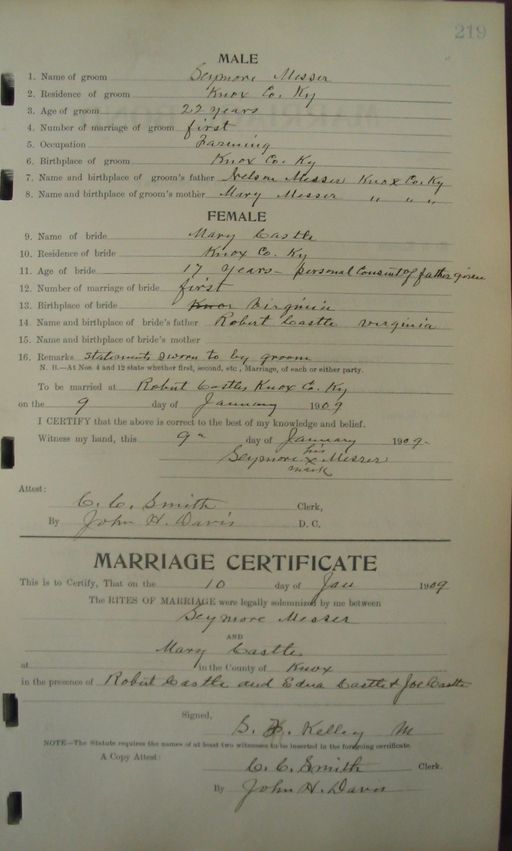 219
MALE
1. Name of groom Seymore Messer
2. Residence of groom Knox Co. Ky
3. Age of groom 22 years
4. Number of marriage of groom first
5. Occupation Farming
6. Birthplace of groom Knox Co. Ky
7. Name and birthplace of groom's father Nelson Messer Knox Co. Ky
8. Name and birthplace of groom's mother Mary Messer " " "
FEMALE
9. Name of bride Mary Castle
10. Residence of bride Knox Co. Ky
11. Age of bride 17 years - personal Consent of father given
12. Number of marriage of bride first
13. Birthplace of bride Knox Virginia
14. Name and birthplace of bride's father Robert Castle virginia
15. Name and birthplace of bride's mother
16. Remarks Statements sworn to by groom
N. B.—At Nos. 4 and 12 state whether first, second, etc., Marriage, of each or either party.
To be married at Robert Castles Knox Co. Ky
on the 9 day of January 1909
I CERTIFY that the above is correct to the best of my knowledge and belief.
Witness my hand, this 9 day of January 1909.
Seymore his x mark Messer
Attest:
C. C. Smith Clerk,
By John H. Davis D. C.
MARRIAGE CERTIFICATE
This is to Certify, That on the 10 day of Jan 1909
The RITES OF MARRIAGE were legally solemnized by me between
Seymore Messer
AND
Mary Castle
at in the County of Knox
in the presence of Robert Castle and Edna Castle & Joe Castle
Signed,
Kelley M
NOTE—The Statute requires the names of at least two witnesses to be inserted in the foregoing certificate.
A Copy Attest:
C. C. Smith Clerk.
By John H. Davis